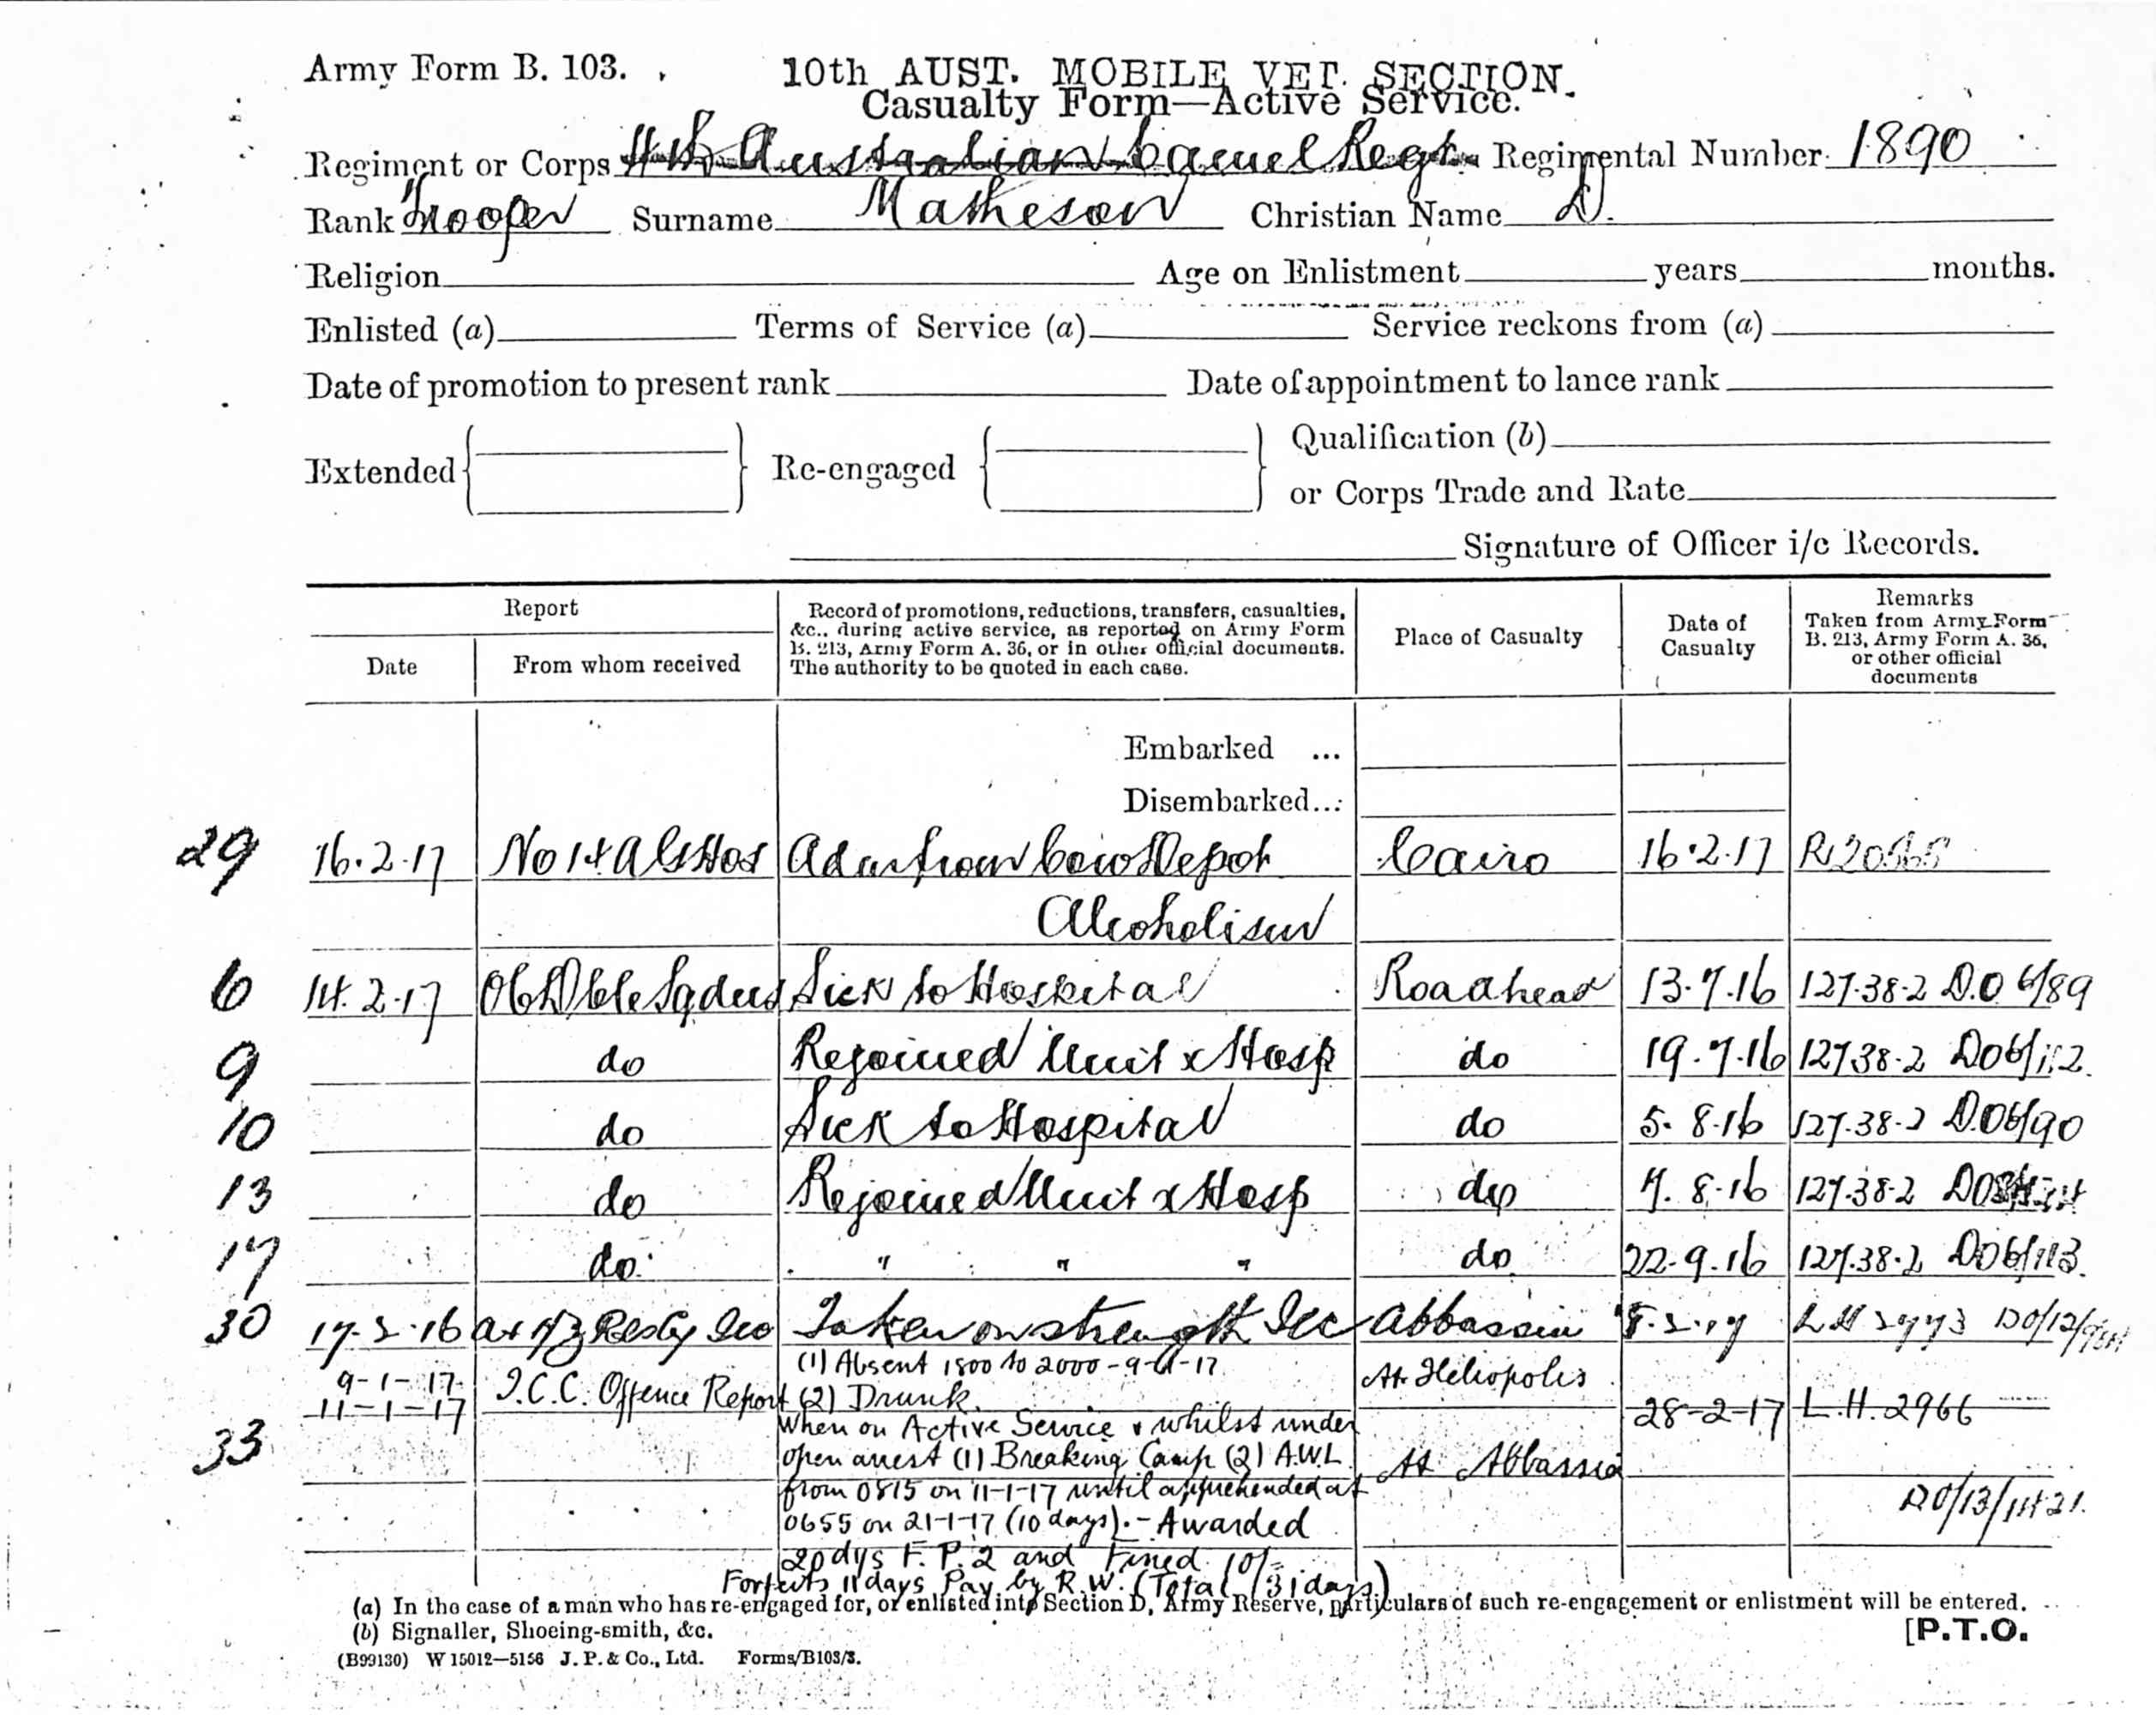 Army Form B. 103.
10th AUST. MOBILE VET. SECTION.
Casualty Form—Active Service.
Regiment or Corps Australian Camel Regt. Regimental Number 1890
Rank Trooper Surname Matheson Christian Name D.
Religion Age on Enlistment years months.
Enlisted (a) Terms of Service (a) Service reckons from (a)
Date of promotion to present rank Date of appointment to lance rank
Extended Re-engaged Qualification (b)
or Corps Trade and Rate
Signature of Officer i/c Records.
Report
Date From whom received
Record of promotions, reductions, transfers, casualties,
&c., during active service, as reported on Army Form
B. 213, Army Form A. 36, or in other official documents.
The authority to be quoted in each case.
Place of Casualty
Date of
Casualty
Remarks
Taken from Army Form
B. 213, Army Form A. 36,
or other official
documents
Embarked ...
Disembarked...
29 16.2.17 No 14 A G Hos Adm from Depot Cairo 16.2.17
Alcoholism
6 14.2.17 Sick to Hospital Roadhead 13.7.16 127.38.2 D.O 6/89
9 do Rejoined Unit x Hosp do 19.7.16 127.38.2 DO6/112.
10 do Sick to Hospital do 5.8.16 127.38.2 D.O6/90
13 do Rejoined Unit x Hosp do 7.8.16 127.38.2
17 do " " " do 22.9.16 127.38.2 DO6/113.
30 Taken on strength Abbassia
9-1-17. I.C.C. Offence Report (1) Absent 1800 to 2000 - 9-1-17 At Heliopolis
11-1-17 (2) Drunk. 28-2-17 L.H. 2966
33 When on Active Service & whilst under
open arrest (1) Breaking Camp (2) A.W.L. At Abbassia
from 0815 on 11-1-17 until apprehended at
0655 on 21-1-17 (10 days).- Awarded
20 dys F.P.2 and Fined 10/-
Forfeits 11 days Pay by R.W. (Total 31 days)
(a) In the case of a man who has re-engaged for, or enlisted into Section D, Army Reserve, particulars of such re-engagement or enlistment will be entered.
(b) Signaller, Shoeing-smith, &c.
[P.T.O.
(B99130) W 15012—5156 J. P. & Co., Ltd. Forms/B103/3.